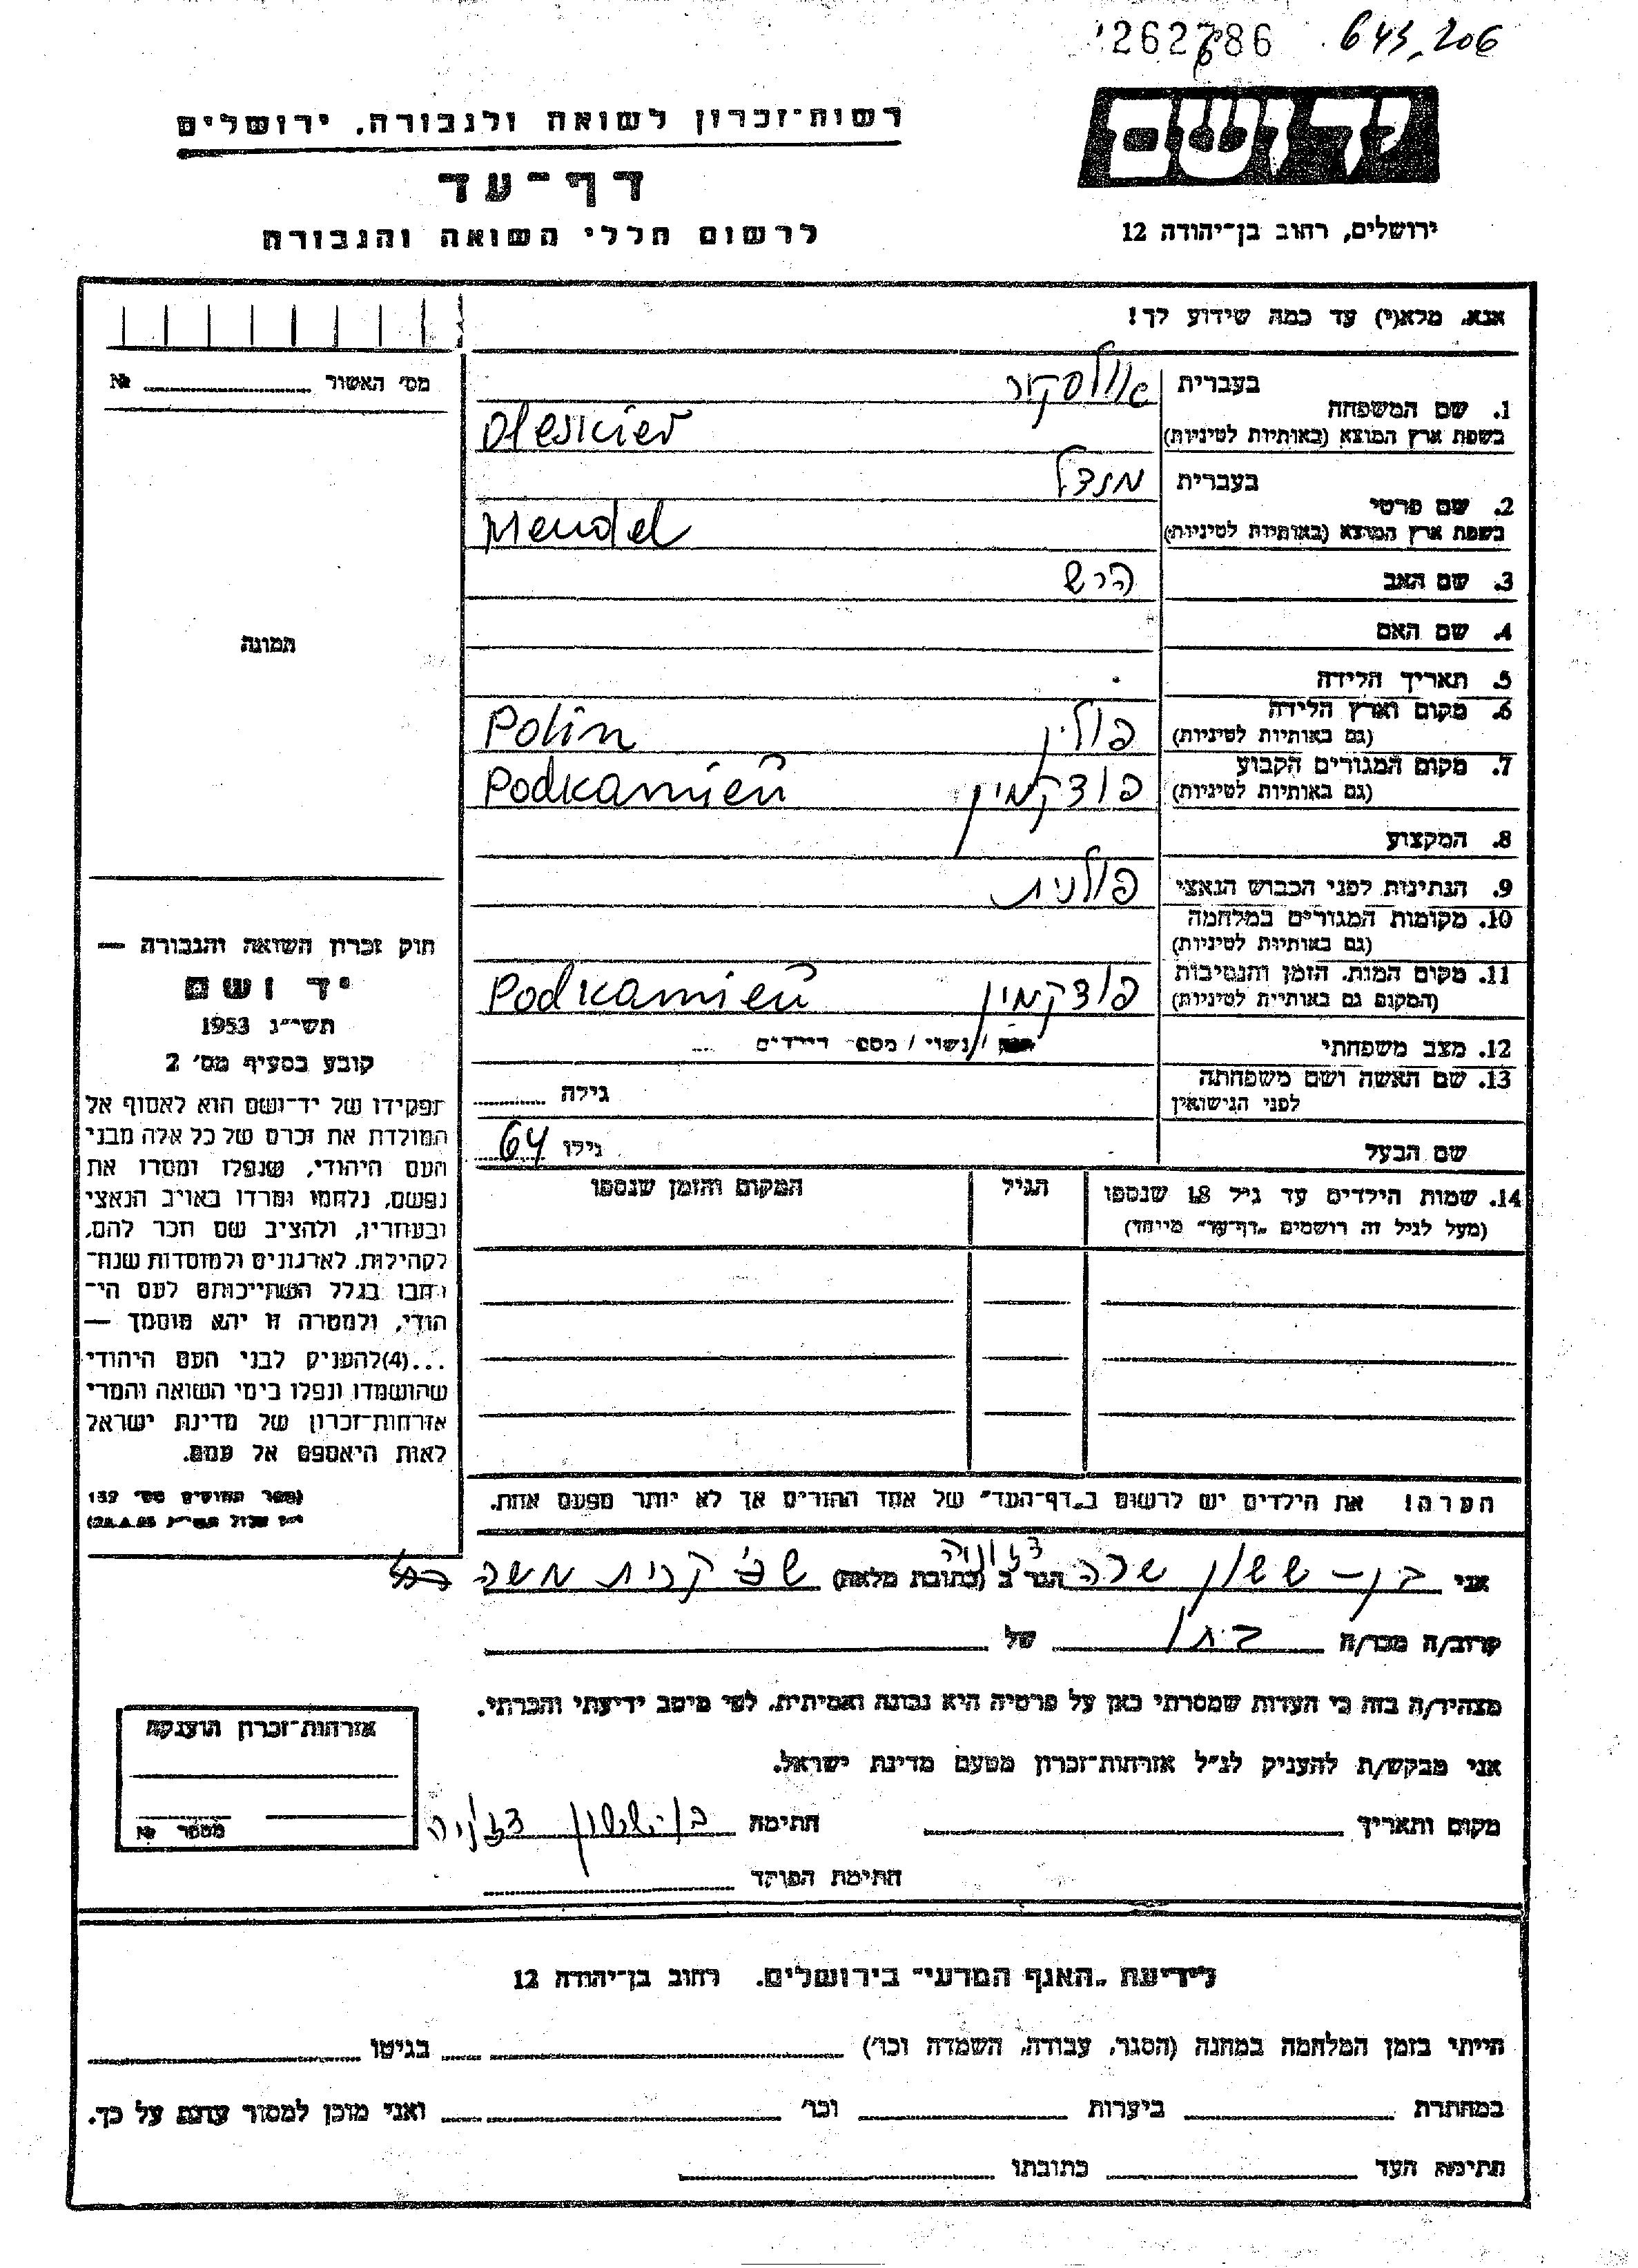 262786 643,206
רשות-זכרון לשואה ולגבורה, ירושלים
יד ושם
דף-עד
לרשום חללי השואה והגבורה
ירושלים, רחוב בן-יהודה 12
אנא, מלא(י) עד כמה שידוע לך!
מס' האשור №
1. שם המשפחה
בעברית אולסקר
בשפת ארץ המוצא (באותיות לטיניות) Oleskier
2. שם פרטי
בעברית מנדל
בשפת ארץ המוצא (באותיות לטיניות) Mendel
3. שם האב הרש
4. שם האם
תמונה
5. תאריך הלידה
6. מקום וארץ הלידה
(גם באותיות לטיניות) פולין Polin
7. מקום המגורים הקבוע
(גם באותיות לטיניות) פודקמין Podkamień
8. המקצוע
9. הנתינות לפני הכבוש הנאצי פולנית
10. מקומות המגורים במלחמה
(גם באותיות לטיניות)
11. מקום המות, הזמן והנסיבות
(המקום גם באותיות לטיניות) פודקמין Podkamień
12. מצב משפחתי / נשוי / מספר הילדים
13. שם האשה ושם משפחתה
לפני הנישואין גילה
שם הבעל גילו 64
14. שמות הילדים עד גיל 18 שנספו הגיל המקום והזמן שנספו
(מעל לגיל זה רושמים "דף-עד" מייוחד)
חוק זכרון השואה והגבורה —
יד ושם
תשי"ג 1953
קובע בסעיף מס' 2
תפקידו של יד-ושם הוא לאסוף אל
המולדת את זכרם של כל אלה מבני
העם היהודי, שנפלו ומסרו את
נפשם, נלחמו ומרדו באויב הנאצי
ובעוזריו, ולהציב שם וזכר להם,
לקהילות, לארגונים ולמוסדות שנח-
רבו בגלל השתייכותם לעם הי-
הודי, ולמטרה זו יהא מוסמך —
...(4) להעניק לבני העם היהודי
שהושמדו ונפלו בימי השואה והמרי
אזרחות-זכרון של מדינת ישראל
לאות היאספם אל עמם.
(ספר החוקים מס' 132
הערה! את הילדים יש לרשום ב"דף-העד" של אחד ההורים אך לא יותר מפעם אחת.
אני בן-ששון שרה הגר ב (כתובת מלאה) שכ' קרית משה
קרוב/ה מכר/ה בתו של
מצהיר/ה בזה כי העדות שמסרתי כאן על פרטיה היא נכונה ואמיתית, לפי מיטב ידיעתי והכרתי.
אני מבקש/ת להעניק לנ"ל אזרחות-זכרון מטעם מדינת ישראל.
מקום ותאריך חתימה בן ששון
חתימת הפוקד
אזרחות-זכרון הוענקה
מספר №
לידיעת "האגף המדעי" בירושלים, רחוב בן-יהודה 12
הייתי בזמן המלחמה במחנה (הסגר, עבודה, השמדה וכו') בגיטו
במחתרת ביערות וכו' ואני מוכן למסור עדות על כך.
חתימת העד כתובתו